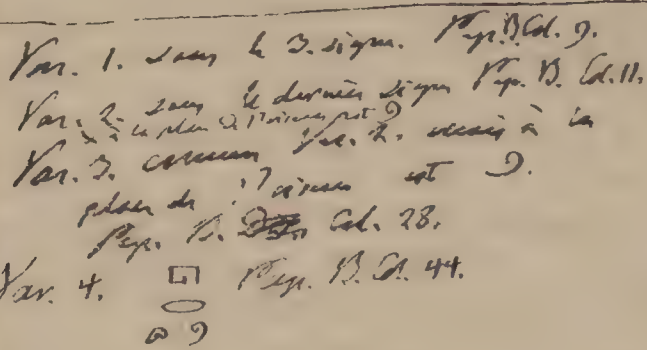 Var. 1. sans le 3. signe. Pap. B. Col. 9.
Var. 2. sans le dernier signe Pap. B. Col. 11.
à la place de l'oiseau est 𓏲
Var. 3. comme Var. 2. mais à la
place de l'oiseau est 𓏲.
Pap. B. Col. 28.
Var. 4. 𓉔 Pap. B. Col. 44.
𓂋
𓏲